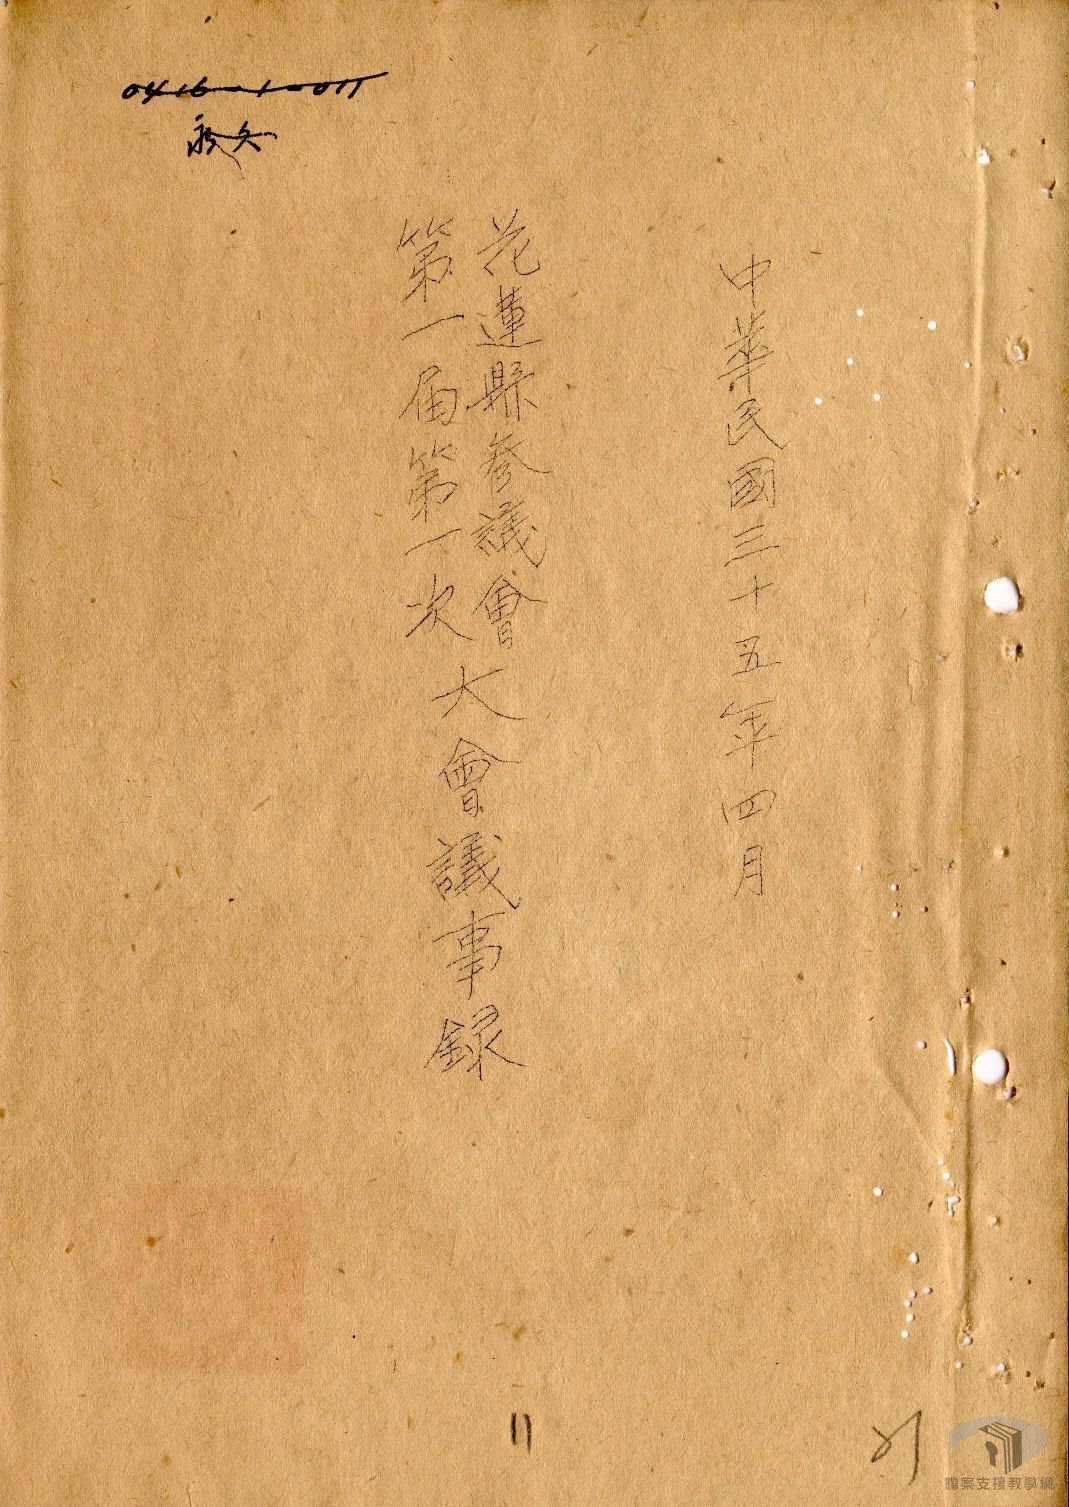 0416-1-011
永久
中華民國三十五年四月
花蓮縣參議會
第一屆第一次
大會議事録
11
檔案支援教學網